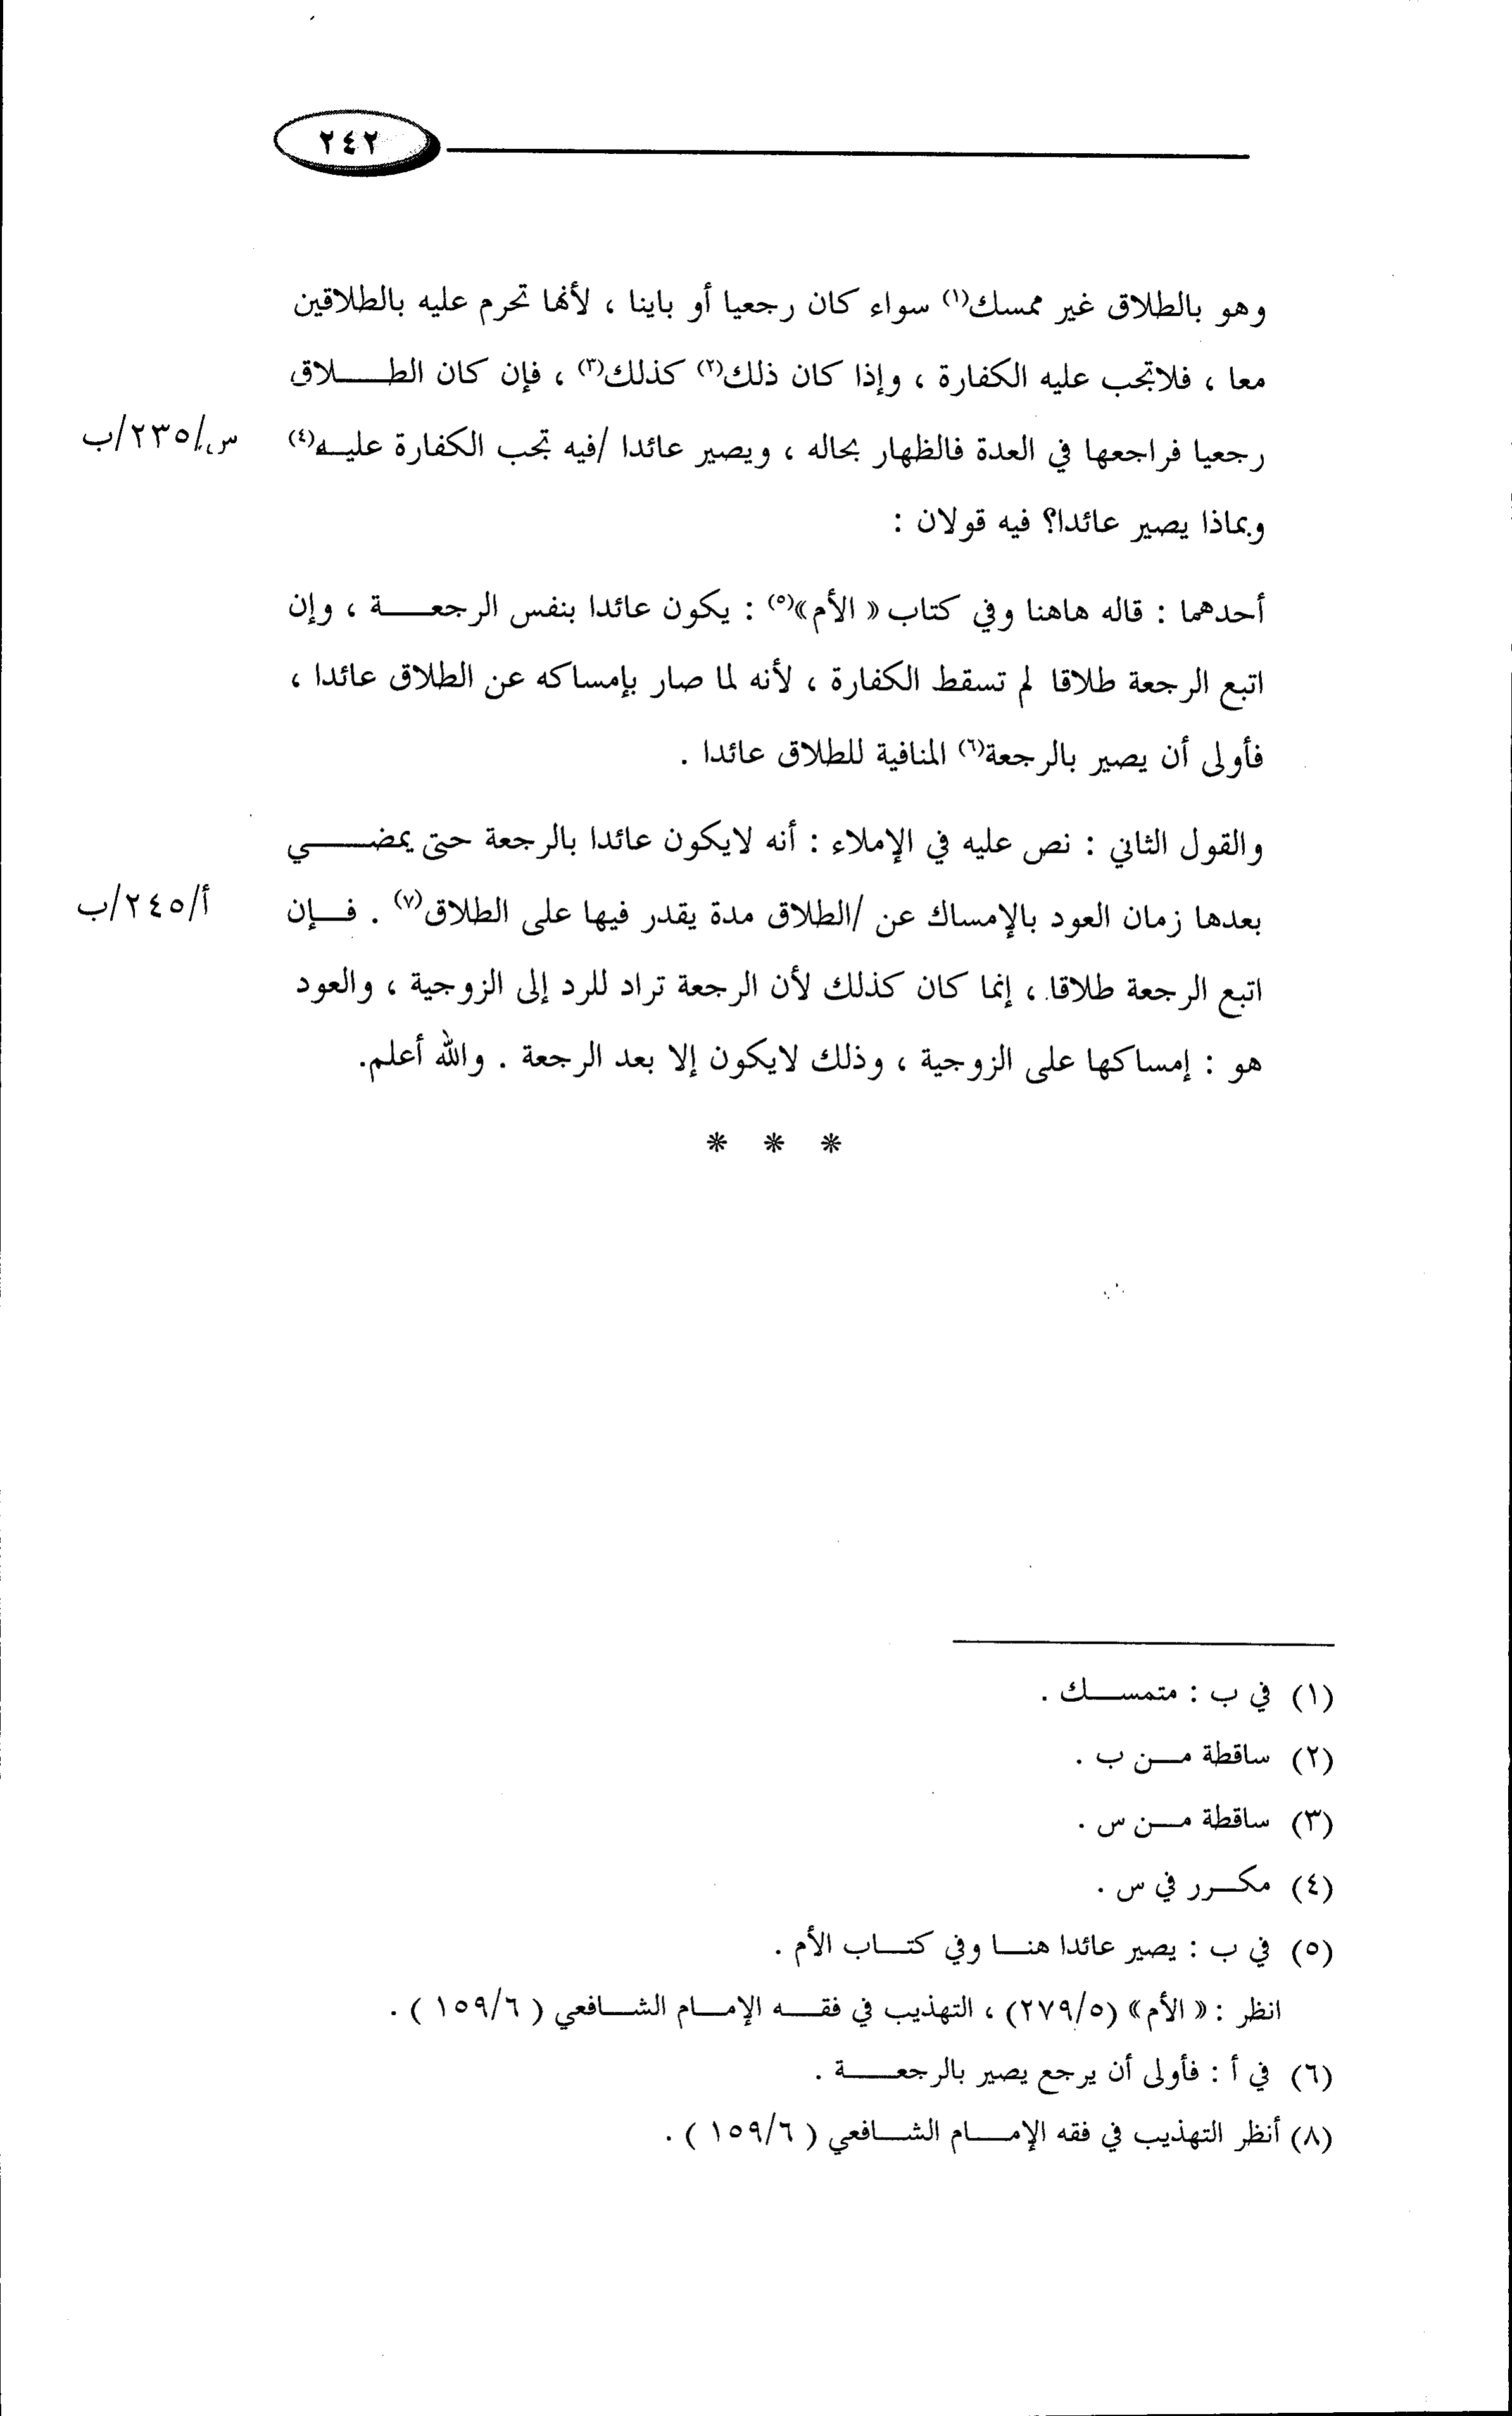 ٢٤٢
وهو بالطلاق غير ممسك(١) سواء كان رجعيا أو باينا ، لأنها تحرم عليه بالطلاقين
معا ، فلاتجب عليه الكفارة ، وإذا كان ذلك(٢) كذلك(٣) ، فإن كان الطلاق
رجعيا فراجعها في العدة فالظهار بحاله ، ويصير عائدا /فيه تجب الكفارة عليه(٤)
س/٢٣٥/ب
وبماذا يصير عائدا؟ فيه قولان :
أحدهما : قاله هاهنا وفي كتاب « الأم»(٥) : يكون عائدا بنفس الرجعة ، وإن
اتبع الرجعة طلاقا لم تسقط الكفارة ، لأنه لما صار بإمساكه عن الطلاق عائدا ،
فأولى أن يصير بالرجعة(٦) المنافية للطلاق عائدا .
والقول الثاني : نص عليه في الإملاء : أنه لايكون عائدا بالرجعة حتى يمضي
بعدها زمان العود بالإمساك عن /الطلاق مدة يقدر فيها على الطلاق(٧) . فإن
أ/٢٤٥/ب
اتبع الرجعة طلاقا ، إنما كان كذلك لأن الرجعة تراد للرد إلى الزوجية ، والعود
هو : إمساكها على الزوجية ، وذلك لايكون إلا بعد الرجعة . والله أعلم.
* * *
(١) في ب : متمسك .
(٢) ساقطة من ب .
(٣) ساقطة من س .
(٤) مكرر في س .
(٥) في ب : يصير عائدا هنا وفي كتاب الأم .
انظر : « الأم» (٢٧٩/٥) ، التهذيب في فقه الإمام الشافعي ( ١٥٩/٦ ) .
(٦) في أ : فأولى أن يرجع يصير بالرجعة .
(٨) أنظر التهذيب في فقه الإمام الشافعي ( ١٥٩/٦ ) .